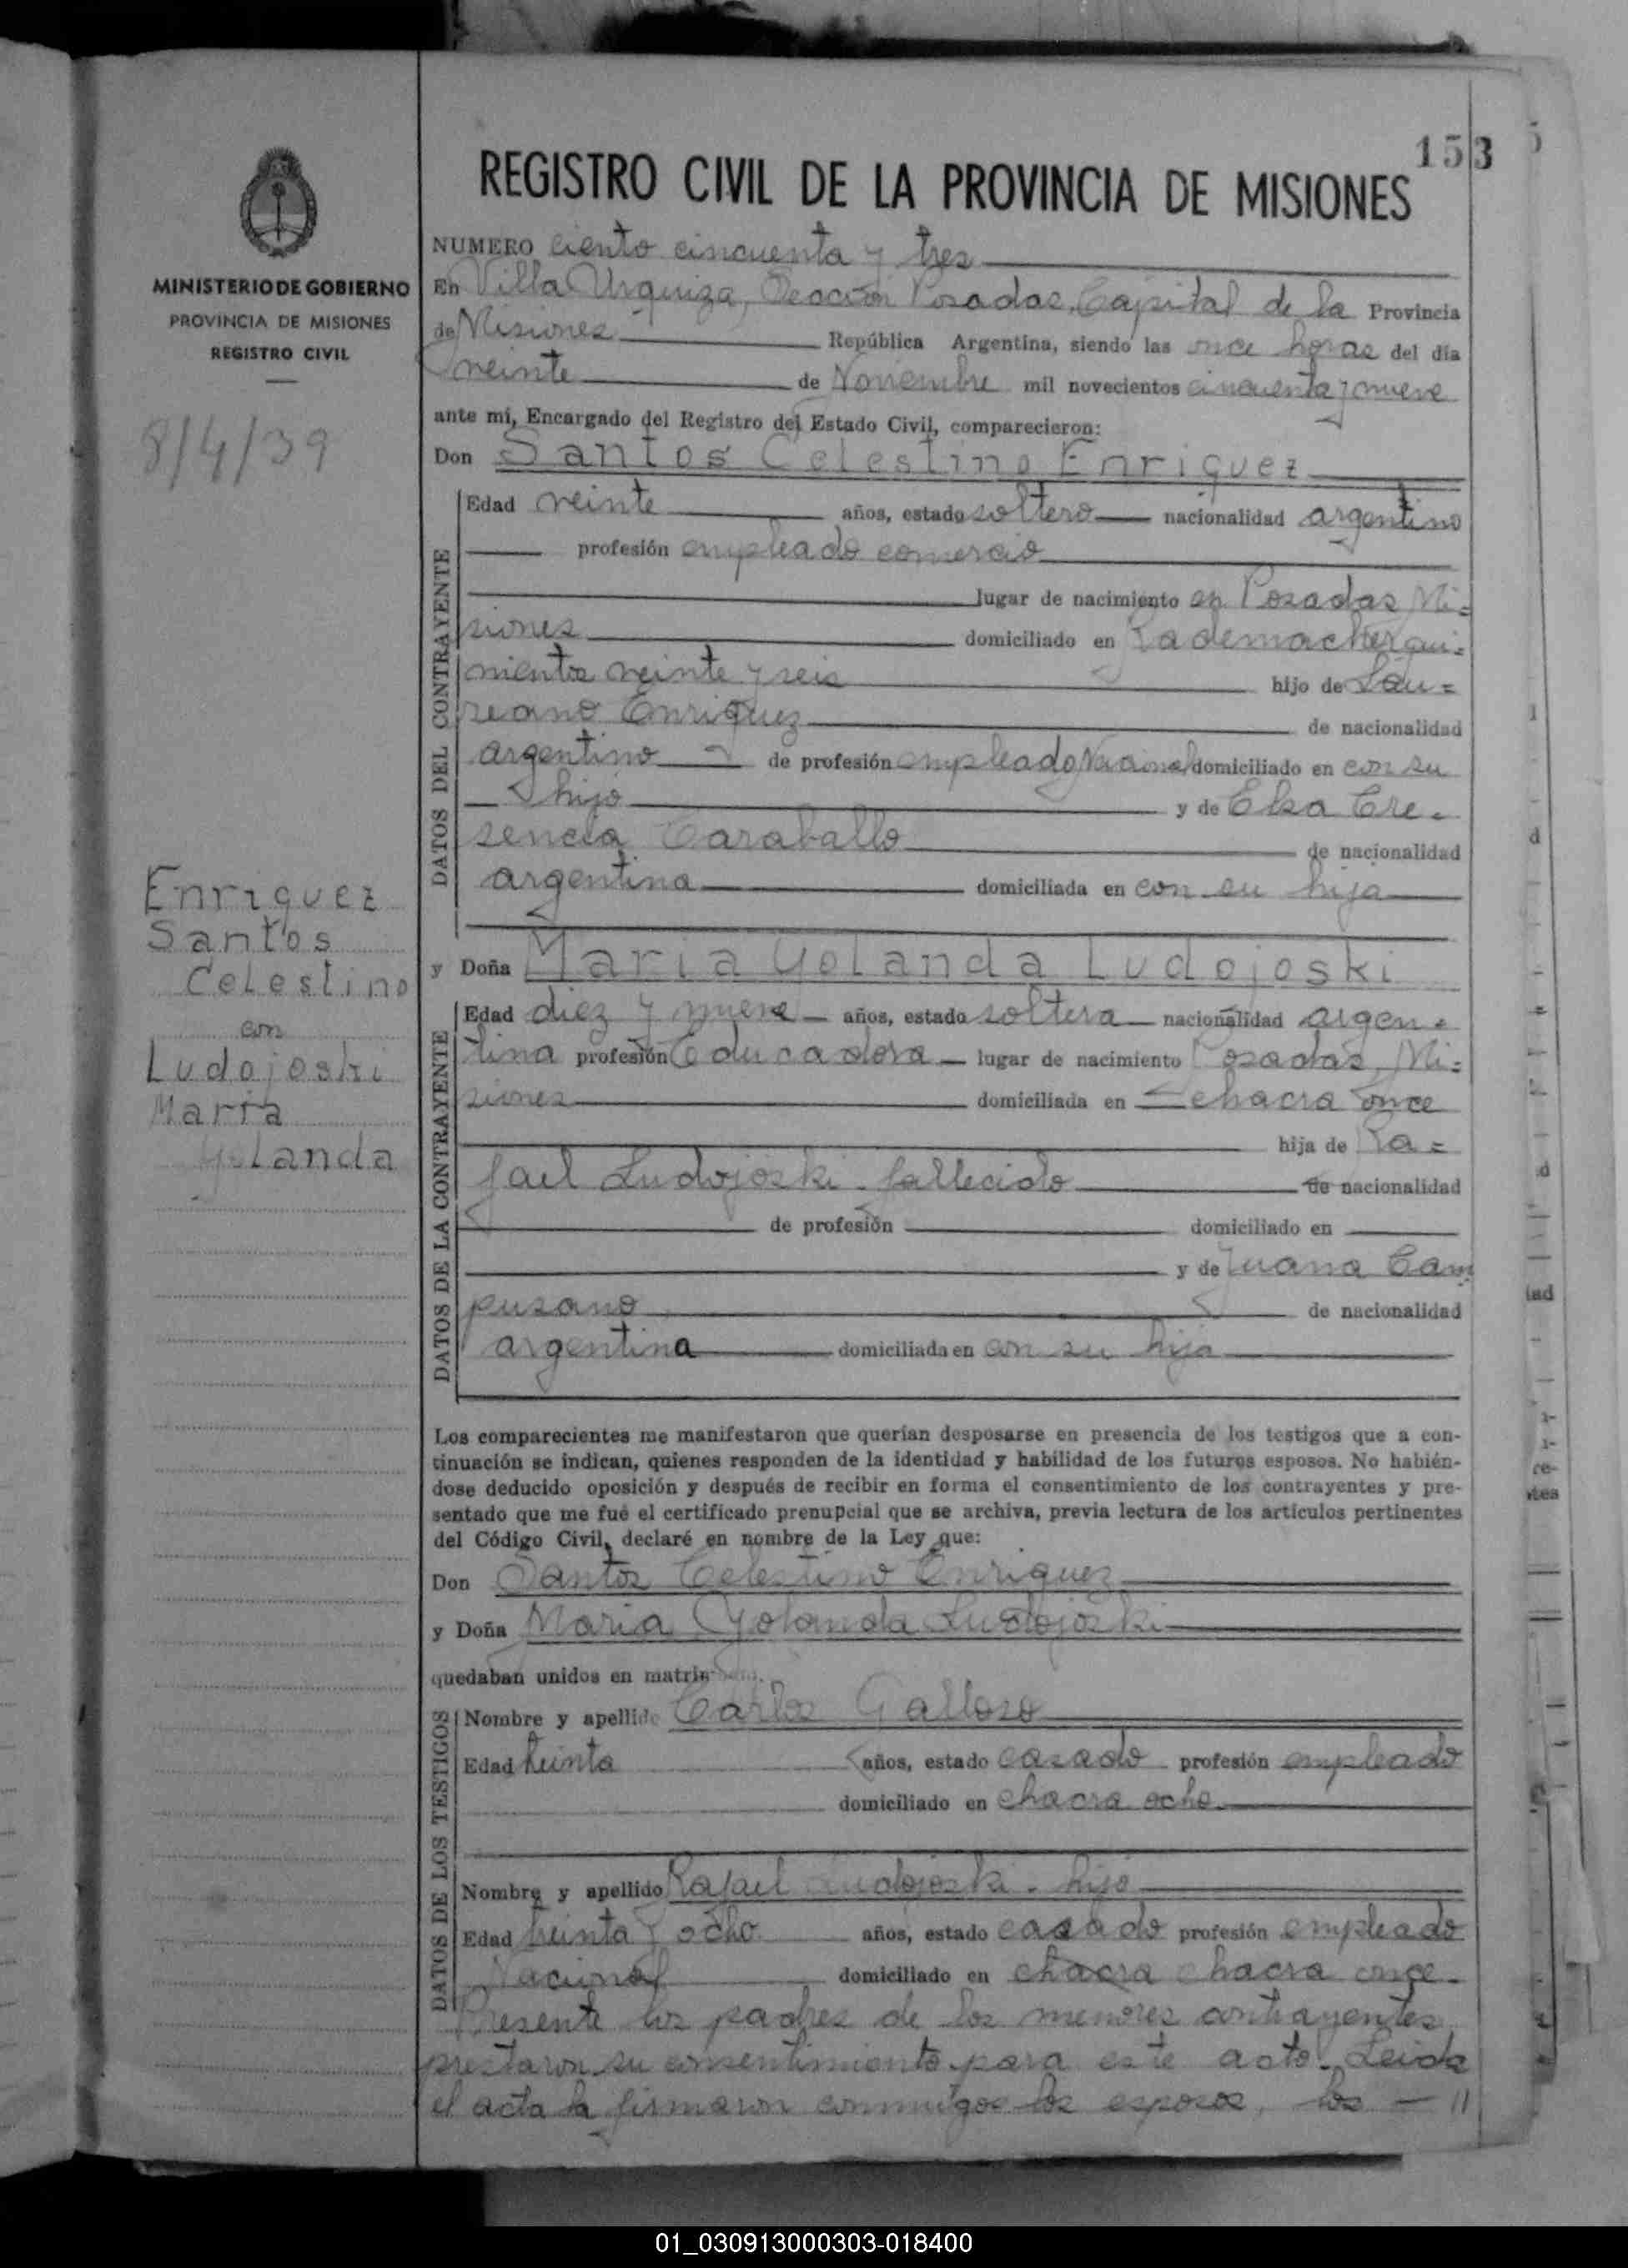 153
REGISTRO CIVIL DE LA PROVINCIA DE MISIONES
MINISTERIO DE GOBIERNO
PROVINCIA DE MISIONES
REGISTRO CIVIL
8/4/39
Enriquez
Santos
Celestino
con
Ludojoski
Maria
Yolanda
NUMERO ciento cincuenta y tres
En Villa Urquiza, Sección Posadas, Capital de la Provincia
de Misiones República Argentina, siendo las once horas del día
veinte de Noviembre mil novecientos cincuenta y nueve
ante mí, Encargado del Registro del Estado Civil, comparecieron:
Don Santos Celestino Enriquez
DATOS DEL CONTRAYENTE
Edad veinte años, estado soltero nacionalidad argentino
profesión empleado comercio
lugar de nacimiento en Posadas Mi=
siones domiciliado en Rademacher qui=
nientos veinte y seis hijo de Lau=
reano Enriquez de nacionalidad
argentino de profesión empleado Nacional domiciliado en con su
hijo y de Elsa Cre-
sencia Caraballo de nacionalidad
argentina domiciliada en con su hija
y Doña Maria Yolanda Ludojoski
DATOS DE LA CONTRAYENTE
Edad diez y nueve años, estado soltera nacionalidad argen-
tina profesión Educadora lugar de nacimiento Posadas, Mi=
siones domiciliada en chacra once
hija de Ra=
fael Ludojoski - fallecido de nacionalidad
de profesión domiciliado en
y de Juana Cam
pusano de nacionalidad
argentina domiciliada en con su hija
Los comparecientes me manifestaron que querían desposarse en presencia de los testigos que a con-
tinuación se indican, quienes responden de la identidad y habilidad de los futuros esposos. No habién-
dose deducido oposición y después de recibir en forma el consentimiento de los contrayentes y pre-
sentado que me fué el certificado prenupcial que se archiva, previa lectura de los artículos pertinentes
del Código Civil, declaré en nombre de la Ley que:
Don Santos Celestino Enriquez
y Doña Maria Yolanda Ludojoski
quedaban unidos en matrim
DATOS DE LOS TESTIGOS
Nombre y apellido Carlos Galloso
Edad treinta años, estado casado profesión empleado
domiciliado en chacra ocho
Nombre y apellido Rafael Ludojoski - hijo
Edad treinta y ocho años, estado casado profesión empleado
Nacional domiciliado en chacra chacra once-
Presente los padres de los menores contrayentes
prestaron su consentimiento para este acto.- Leida
el acta la firmaron conmigos los esposos, los - //
01_030913000303-018400